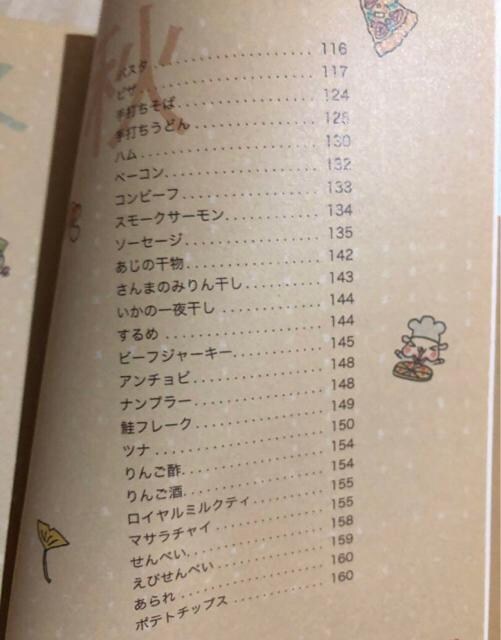 秋
パスタ 116
ピザ 117
手打ちそば 124
手打ちうどん 128
ハム 130
ベーコン 132
コンビーフ 133
スモークサーモン 134
ソーセージ 135
あじの干物 142
さんまのみりん干し 143
いかの一夜干し 144
するめ 144
ビーフジャーキー 145
アンチョビ 148
ナンプラー 148
鮭フレーク 149
ツナ 150
りんご酢 154
りんご酒 154
ロイヤルミルクティ 155
マサラチャイ 155
せんべい 158
えびせんべい 159
あられ 160
ポテトチップス 160